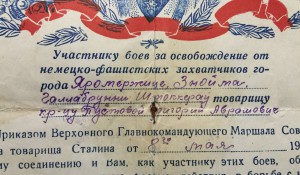 Участнику боев за освобождение от
немецко-фашистских захватчиков го-
рода Яромержице, Знойма,
Голлабрунн и Штоккерау товарищу
кр-цу Пустовой Григорий Аврамович
Приказом Верховного Главнокомандующего Маршала Сове
товарища Сталина от 8го мая 19
му соединению и Вам, как участнику этих боев, об